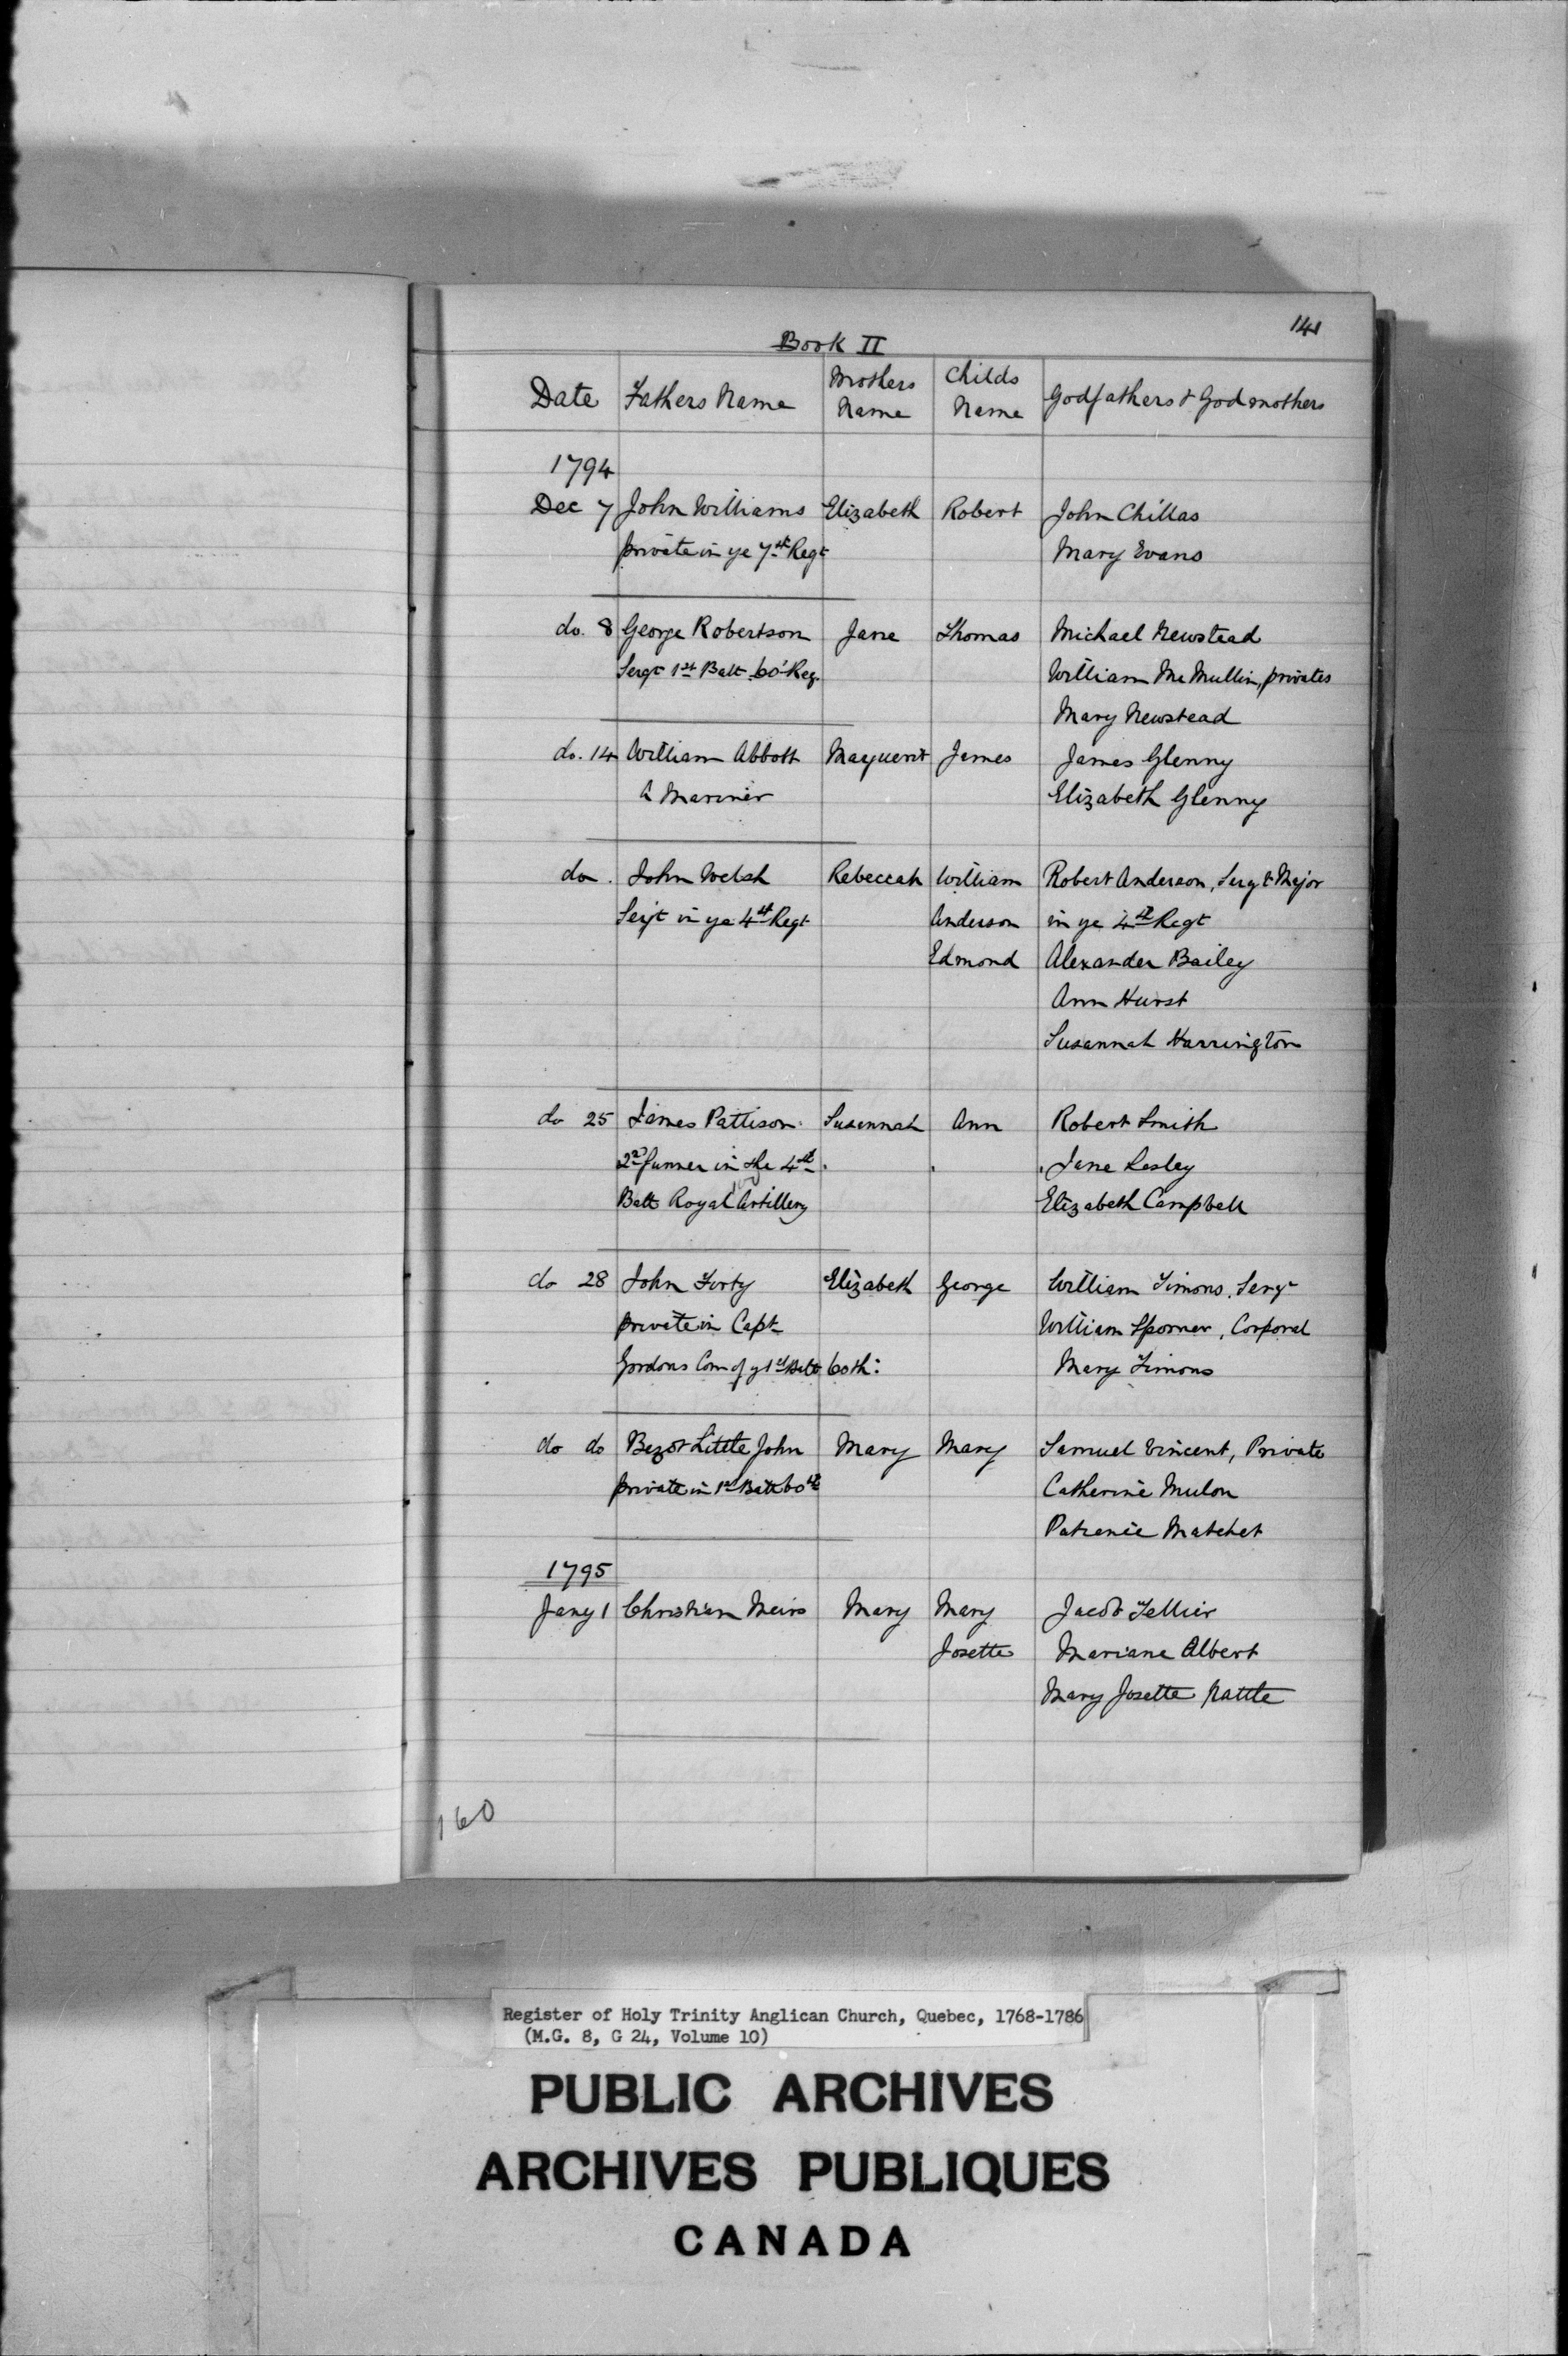 141
Book II
Date Fathers Name Mothers Name Childs Name Godfathers & Godmothers
1794
Dec 7 John Williams Elizabeth Robert John Chillas
private in ye 7th Regt Mary Evans
do. 8 George Robertson Jane Thomas Michael Newstead
Sergt 1st Batt. 60' Reg. William McMullin, privates
Mary Newstead
do. 14 William Abbott James James Glenny
A Mariner Elizabeth Glenny
do. John Welsh Rebeccah William Robert Anderson, Sergt Major
Sergt in ye 4th Regt Anderson in ye 4th Regt
Edmond Alexander Bailey
Ann Hurst
Susannah Harrington
do 25 James Pattison Susannah Ann Robert Smith
2nd in the 4th Jane Lesley
Batt Royal Artillery Elizabeth Campbell
do 28 John Forty Elizabeth George William Timons, Sergt
private in Capt William Sporner, Corporal
Gordons Com of y 1st Batt 60th: Mary Timons
do do Little John Mary Mary Samuel Vincent, Private
private in 1st Batt 60th Catherine Mulon
Matchet
1795
Jany 1 Christian Meirs Mary Mary Jacob Tellier
Josette Mariane Albert
Mary Josette
160
Register of Holy Trinity Anglican Church, Quebec, 1768-1786
(M.G. 8, G 24, Volume 10)
PUBLIC ARCHIVES
ARCHIVES PUBLIQUES
CANADA